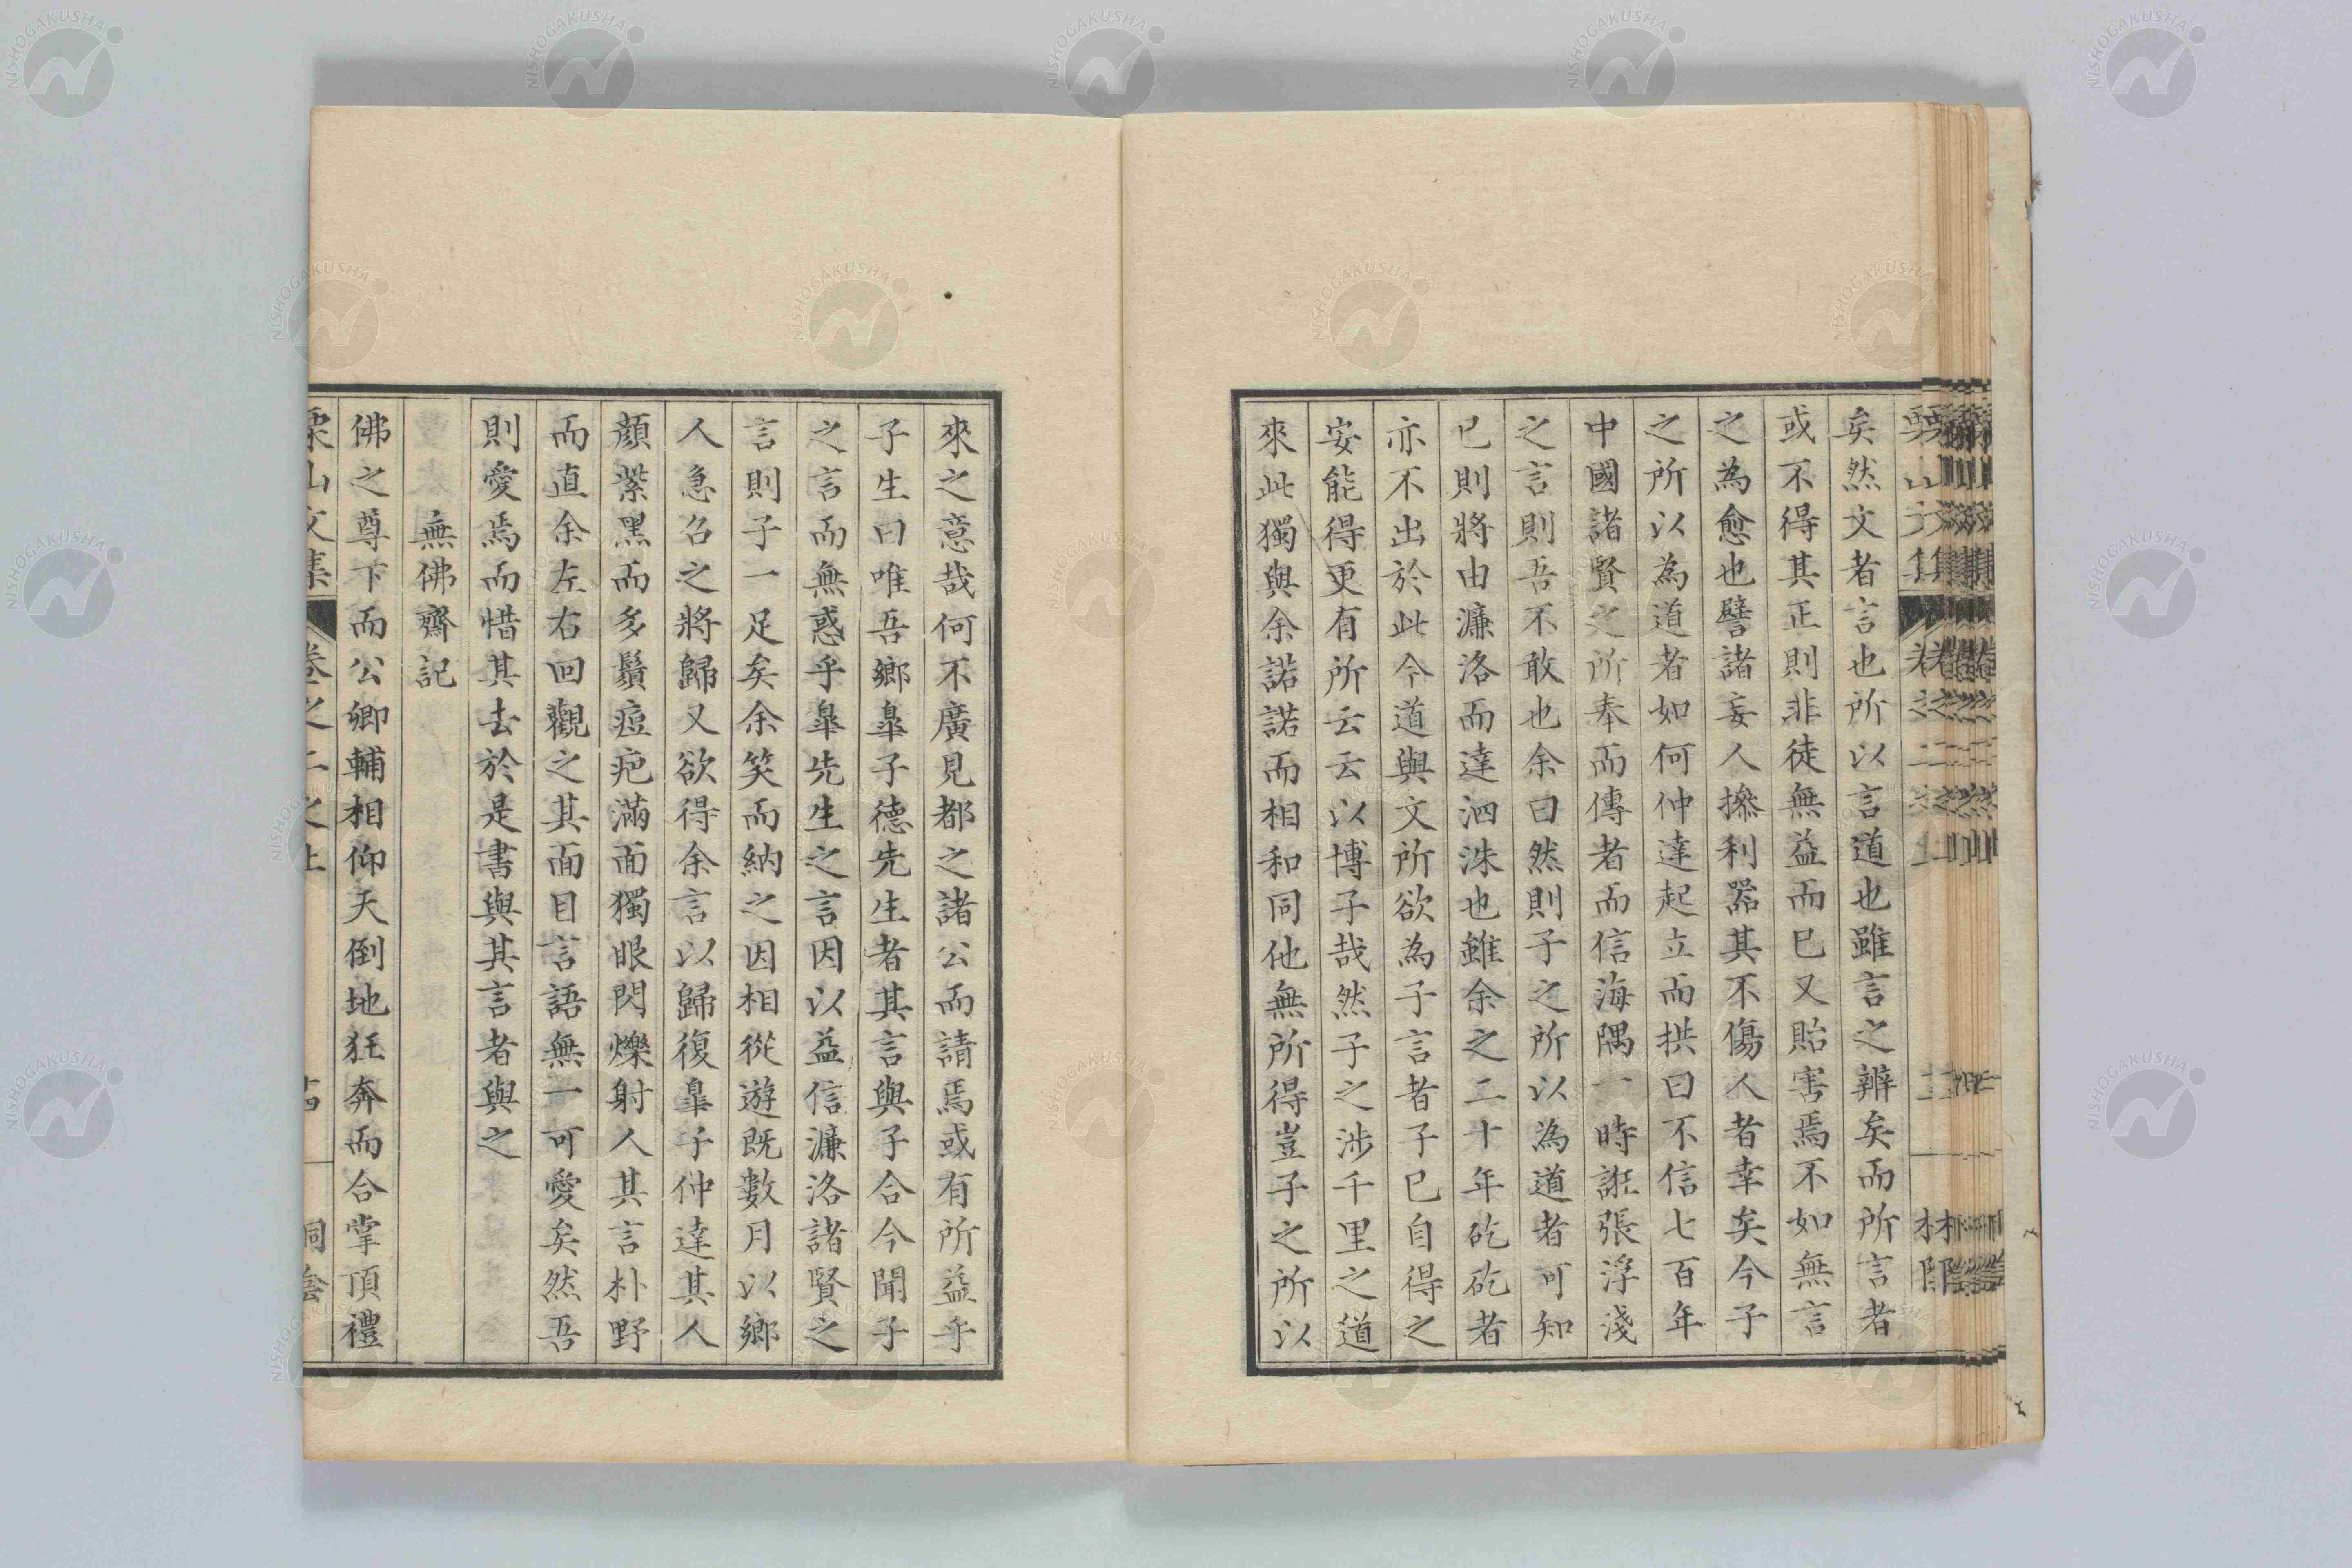 矣然文者言也所以言道也雖言之辨矣而所言者
或不得其正則非徒無益而已又貽害焉不如無言
之為愈也譬諸妄人摻利器其不傷人者幸矣今子
之所以為道者如何仲達起立而拱曰不信七百年
中國諸賢之所奉而傳者而信海隅一時誑張浮淺
之言則吾不敢也余曰然則子之所以為道者可知
已則將由濂洛而達泗洙也雖余之二十年矻矻者
亦不出於此今道與文所欲為子言者子已自得之
安能得更有所云云以博子哉然子之涉千里之道
來此獨與余諾諾而相和同他無所得豈子之所以
來之意哉何不廣見都之諸公而請焉或有所益乎
子生曰唯吾鄉皐子德先生者其言與子合今聞子
之言而無惑乎皐先生之言因以益信濂洛諸賢之
言則子一足矣余笑而納之因相從遊既數月以鄉
人急召之將歸又欲得余言以歸復皐子仲達其人
顏紫黑而多鬚痘疤滿面獨眼閃爍射人其言朴野
而直余左右回觀之其面目言語無一可愛矣然吾
則愛焉而惜其去於是書與其言者與之
無佛齋記
佛之尊下而公卿輔相仰天倒地狂奔而合掌頂禮
栗山文集 卷之二之上
NISHOGAKUSHA